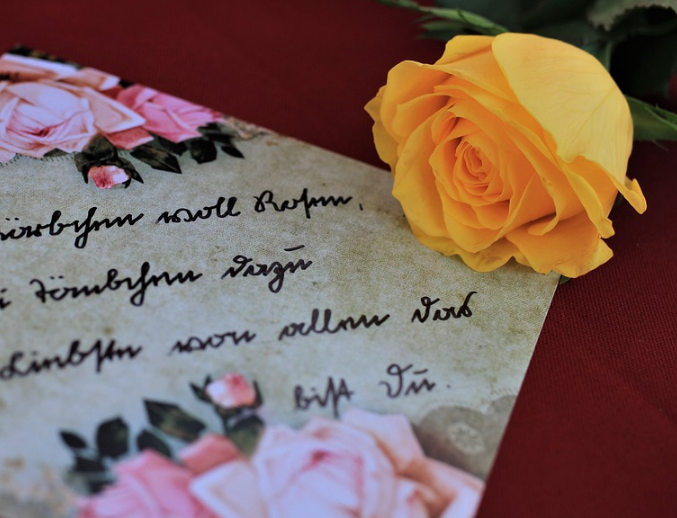 örbchen voll Rosen,
i Täubchen dazu
Liebste von allen das
bist Du.